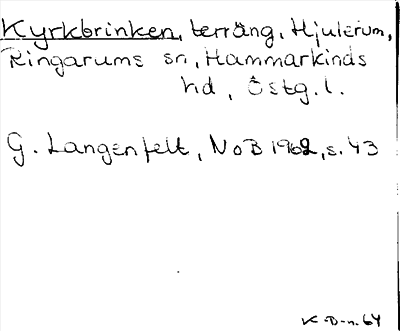 Kyrkbrinken, terräng, Hjulerum,
Ringarums sn, Hammarkinds
hd, Östg.l.
G. Langenfelt, NoB 1962, s. 43
K-D-n. 64